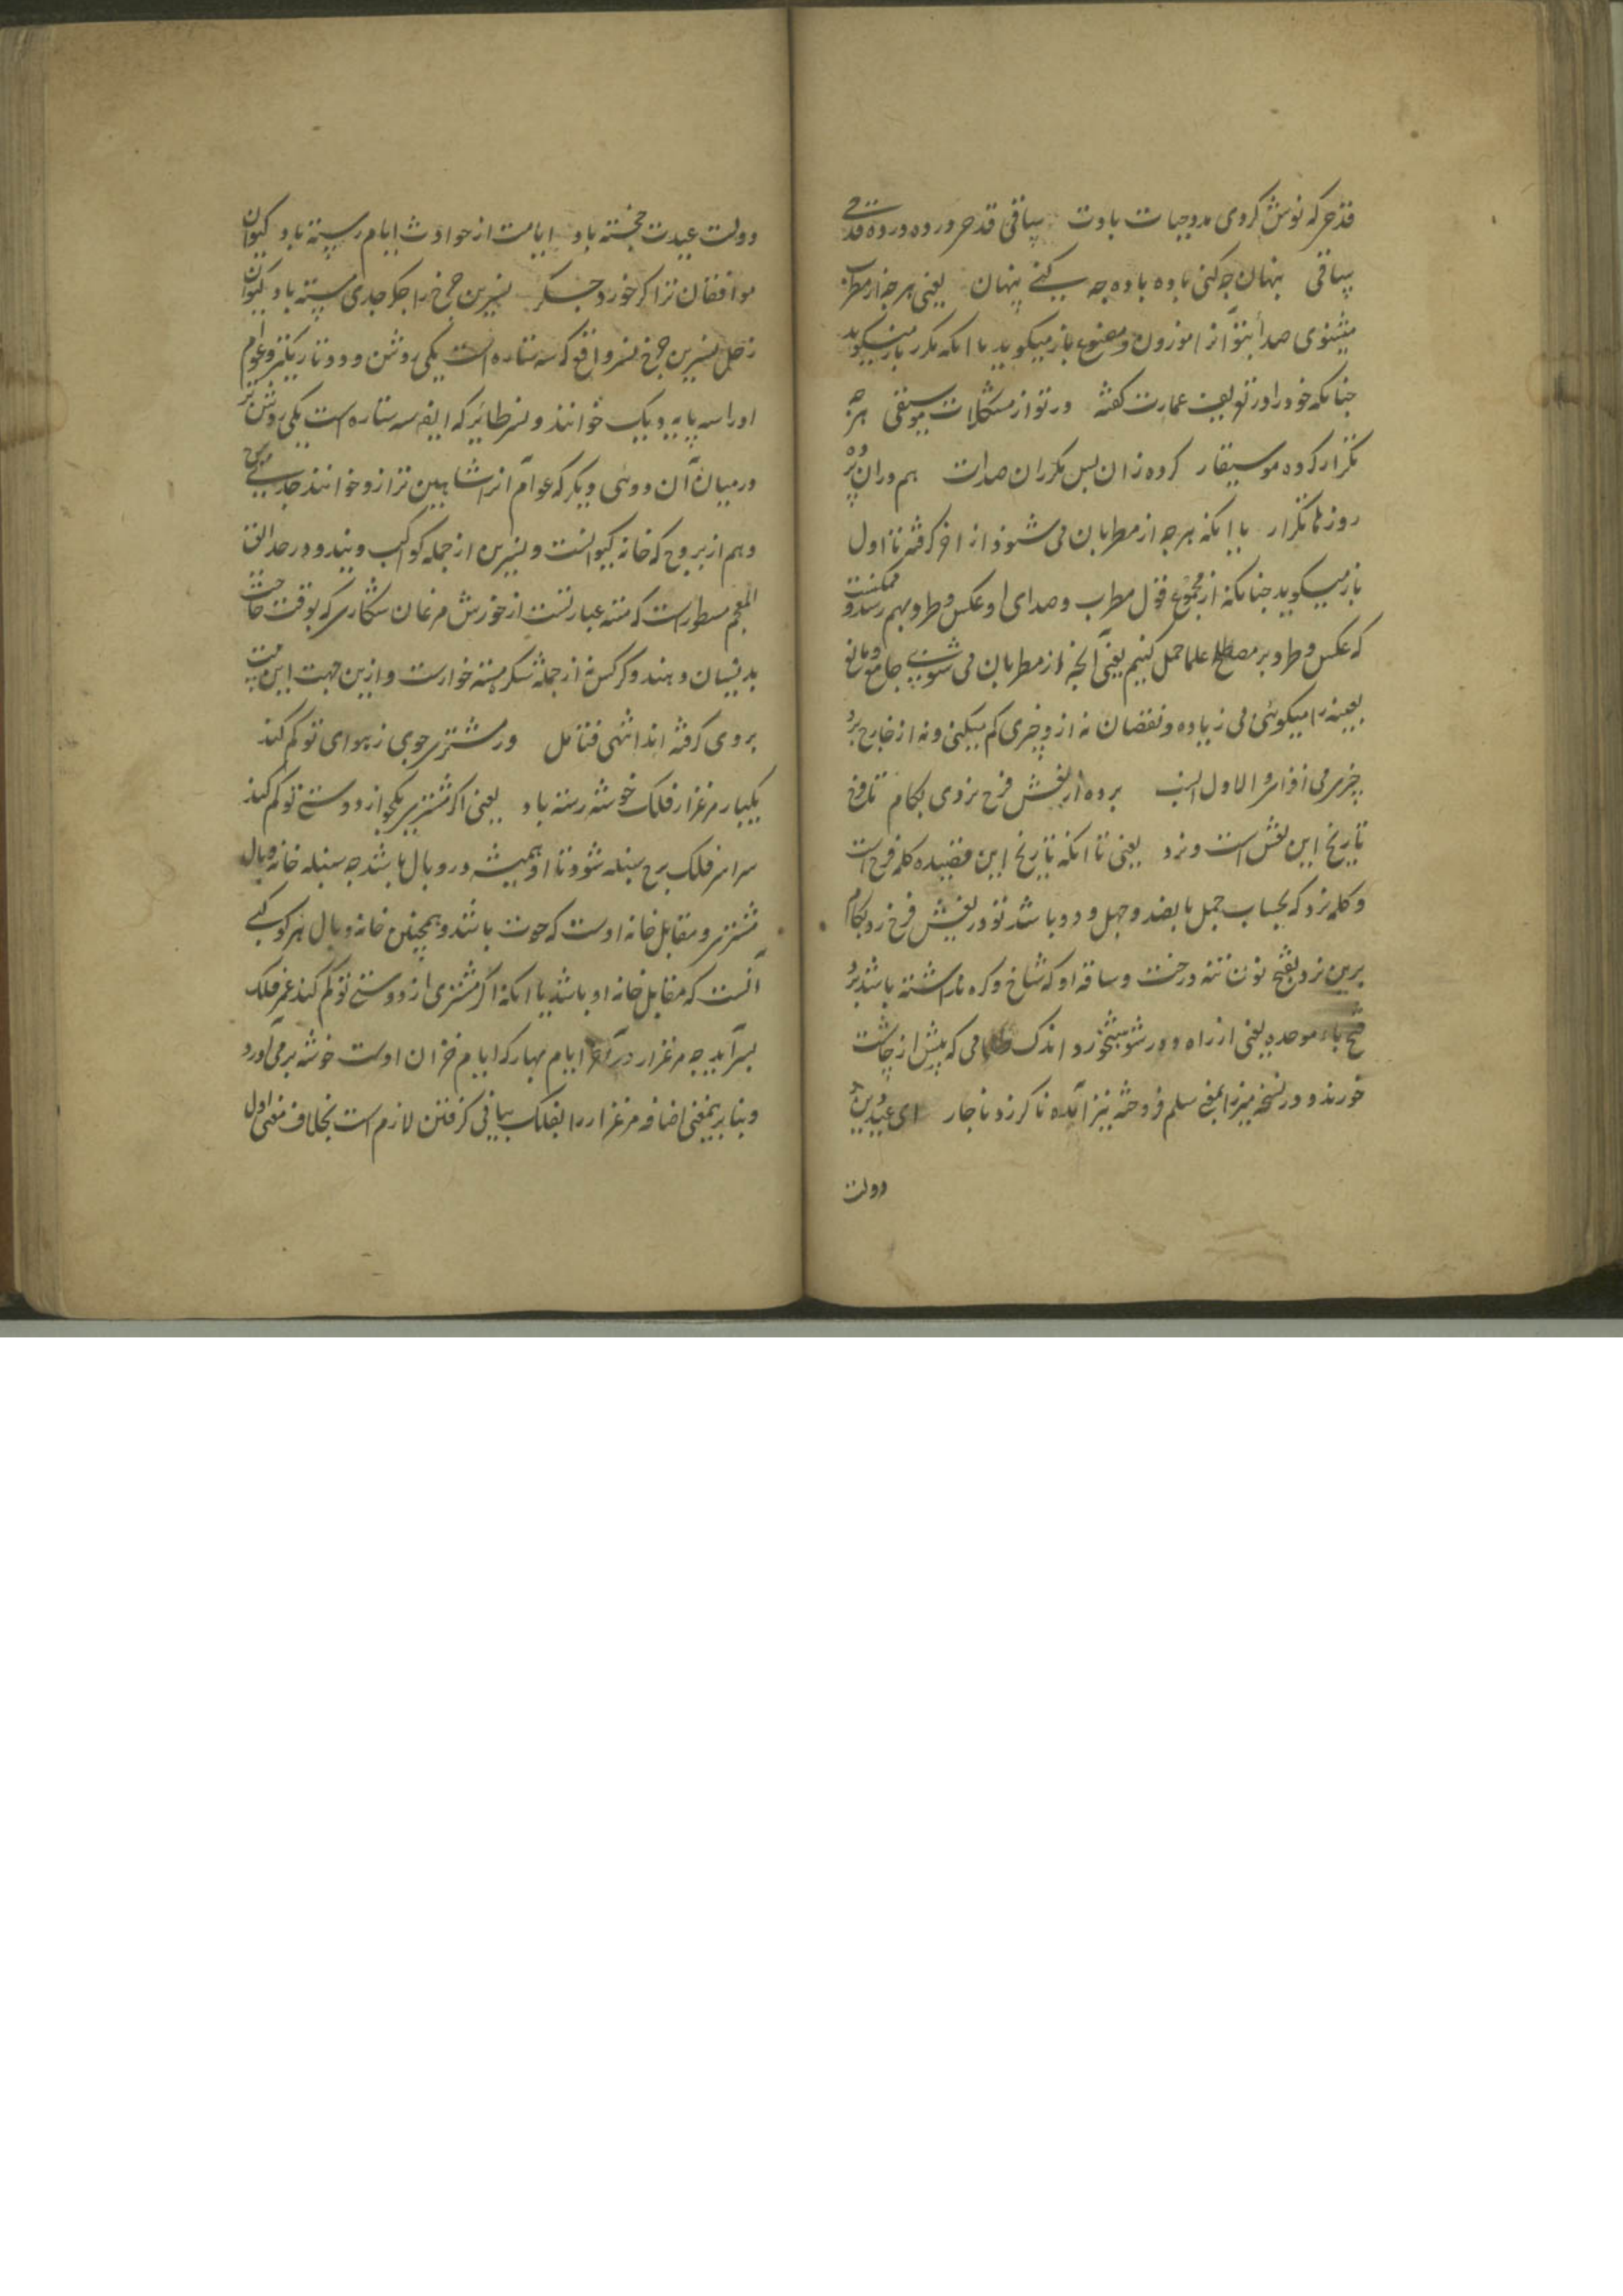 قدحی که نوش کردی مد حیات بادت ساقی قدح در ده در ده قدحی
ساقی پنهان چه کنی باده باده چه کنی پنهان یعنی هر چه از مطرب
میشنوی صدا بتو آنرا موزون و مصنوع باز میگوید یا انکه مکرر باز میگوید
چنانکه خود در تعریف عمارت گفته ور تو از مشکلات موسیقی هر چه
تکرار کرده موسیقار کرده زان پس مکرران صدات هم در ان پرده
روزها تکرار یا انکه هر چه از مطربان می شنود از اخر گرفته تا اول
باز میگوید چنانکه از مجموع قول مطرب و صدای او عکس و طرد بهم رسد و ممکنست
که عکس و طرد بر مصطلح علما حمل کنیم یعنی آنچه از مطربان می شنوی جامع و مانع
بعینه را میگوئی بی زیاده و نقصان نه از و چیزی کم میکنی و نه از خارج برو
چیزی می افزائی و الاول انسب برده از نقش فرخ نردی بکام تا فرخ
تاریخ این نقش است و نرد یعنی تا انکه تاریخ این قصیده کلمه فرخ است
و کلمه نرد که بحساب جمل پانصد و چهل و دو باشد تو در نقش فرخ نرد بکام
برین نرد بفتح نون تنه درخت و ساقه او که شاخ و کره نداشته باشد برد
فتح باء موحده یعنی از راه دور شو بشخورد اندک طعامی که پیش از چاشت
خورند و در نسخه میرزا بمعنی سلم فروخته نیز آمده ناکرزد ناچار ای عید دین
دولت
دولت عیدت خجسته باد ایامت از حوادث ایام رسته باد کیوان
موافقان ترا گر خورد جگر نسرین چرخ را جگر جدی مسته باد کیوان
زحل نسرین چرخ نسر واقع که سه ستاره است یکی روشن و دو تاریکتر و عوام
او را سه پایه دیک خوانند و نسر طائر که ایضا سه ستاره است یکی روشن تر
در میان آن دو تی دیگر که عوام آنرا شاهین ترازو خوانند جدی منسی
و هم از بروج که خانه کیوانست و نسرین از جمله کواکب ویند و در حدائق
المعجم مسطور است که مسته عبارتست از خورش مرغان شکاری که بوقت حاجت
بدیشان دهند و کرکس نه از جمله شکره مسته خوارست و ازین جهت این بیت
بروی گرفته اند انتهی فتامل ور مشتری جوی ز هوای تو کم کند
یکباره مرغزار فلک خوشه رسته باد یعنی اکر مشتری یکجو از دوستی تو کم کند
سراسر فلک برج سنبله شود تا او همیشه در وبال باشد چه سنبله خانه وبال
مشتری و مقابل خانه اوست که حوت باشد و همچنین خانه وبال هر کوکبی
آنست که مقابل خانه او باشد یا انکه اکر مشتری از دوستی تو کم کند عمر فلک
بسر آید چه مرغزار در آخر ایام بهار که ایام خزان اوست خوشه بر می آورد
و بنا برینمعنی اضافه مرغزار را بفلک بیانی گرفتن لازم است بخلاف معنی اول